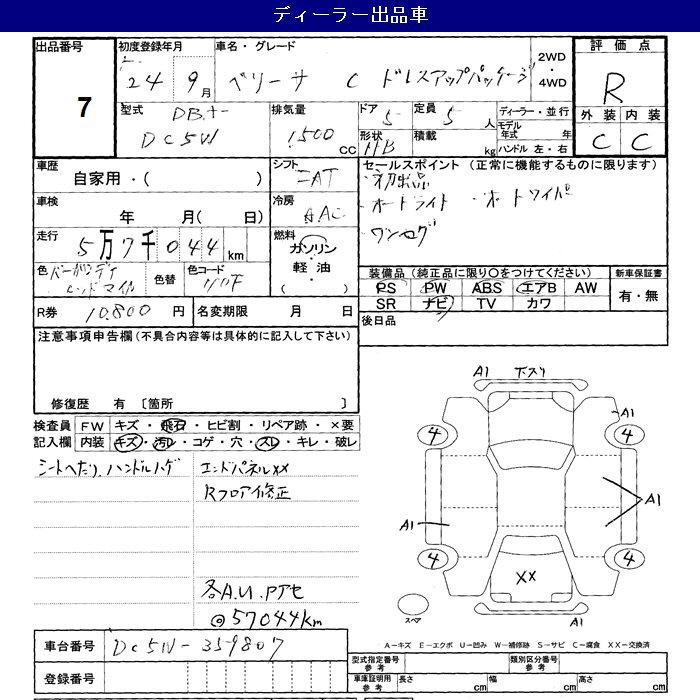 ディーラー出品車
出品番号 初度登録年月 車名・グレード 2WD・4WD 評価点
7 24年9月 ベリーサ C ドレスアップパッケージ R
型式 DBA- DC5W 排気量 1500 CC ドア 5 定員 5人 ディーラー・並行 外装 内装
形状 HB 積載 kg モデル年式 年 ハンドル 左・右 C C
車歴 自家用・( ) シフト FAT セールスポイント (正常に機能するものに限ります)
車検 年 月( 日) 冷房 AAC
・オートライト ・オートワイパ
・ワンセグ
走行 5万7千044km 燃料 ガソリン 軽油 ( )
装備品 (純正品に限り○をつけてください) 新車保証書
色 バーガンディレッドマイカ 色替 色コード
PS PW ABS エアB AW 有・無
SR ナビ TV カワ
R券 10,800円 名変期限 月 日 後日品
注意事項申告欄 (不具合内容等は具体的に記入して下さい)
修復歴 有 〔箇所 〕
検査員記入欄 FW キズ・飛石・ヒビ割・リペア跡・×要
内装 キズ・汚レ・コゲ・穴・スレ・キレ・破レ
シートヘたり、ハンドルハゲ エンドパネルXX
Rフロア修正
各A.U.Pアセ
@57044km
A1 下スリ
A1
4 4
A1 A1
4 4
XX
スペア A1
A-キズ E-エクボ U-凹み W-補修跡 S-サビ C-腐食 XX-交換済
車台番号 DC5W-359807
登録番号
型式指定番号 参考 類別区分番号 参考
車庫証明用 参考 長さ cm 幅 cm 高さ cm